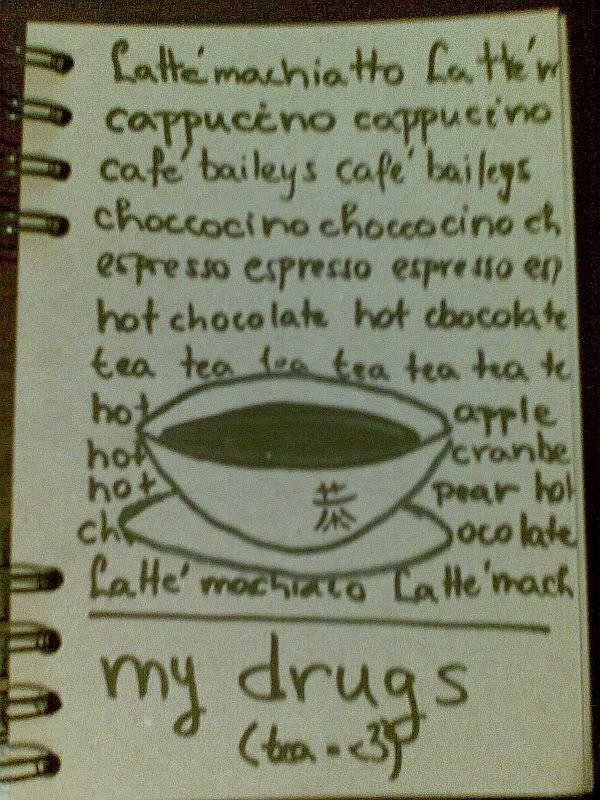 Latté machiatto Latté m
cappucino cappucino
café baileys café baileys
choccocino choccocino ch
espresso espresso espresso esp
hot chocolate hot chocolate
tea tea tea tea tea tea te
hot apple
hot cranbe
hot pear hot
ch ocolate
茶
Latté machiato Latté mach
my drugs
(tea = <3)